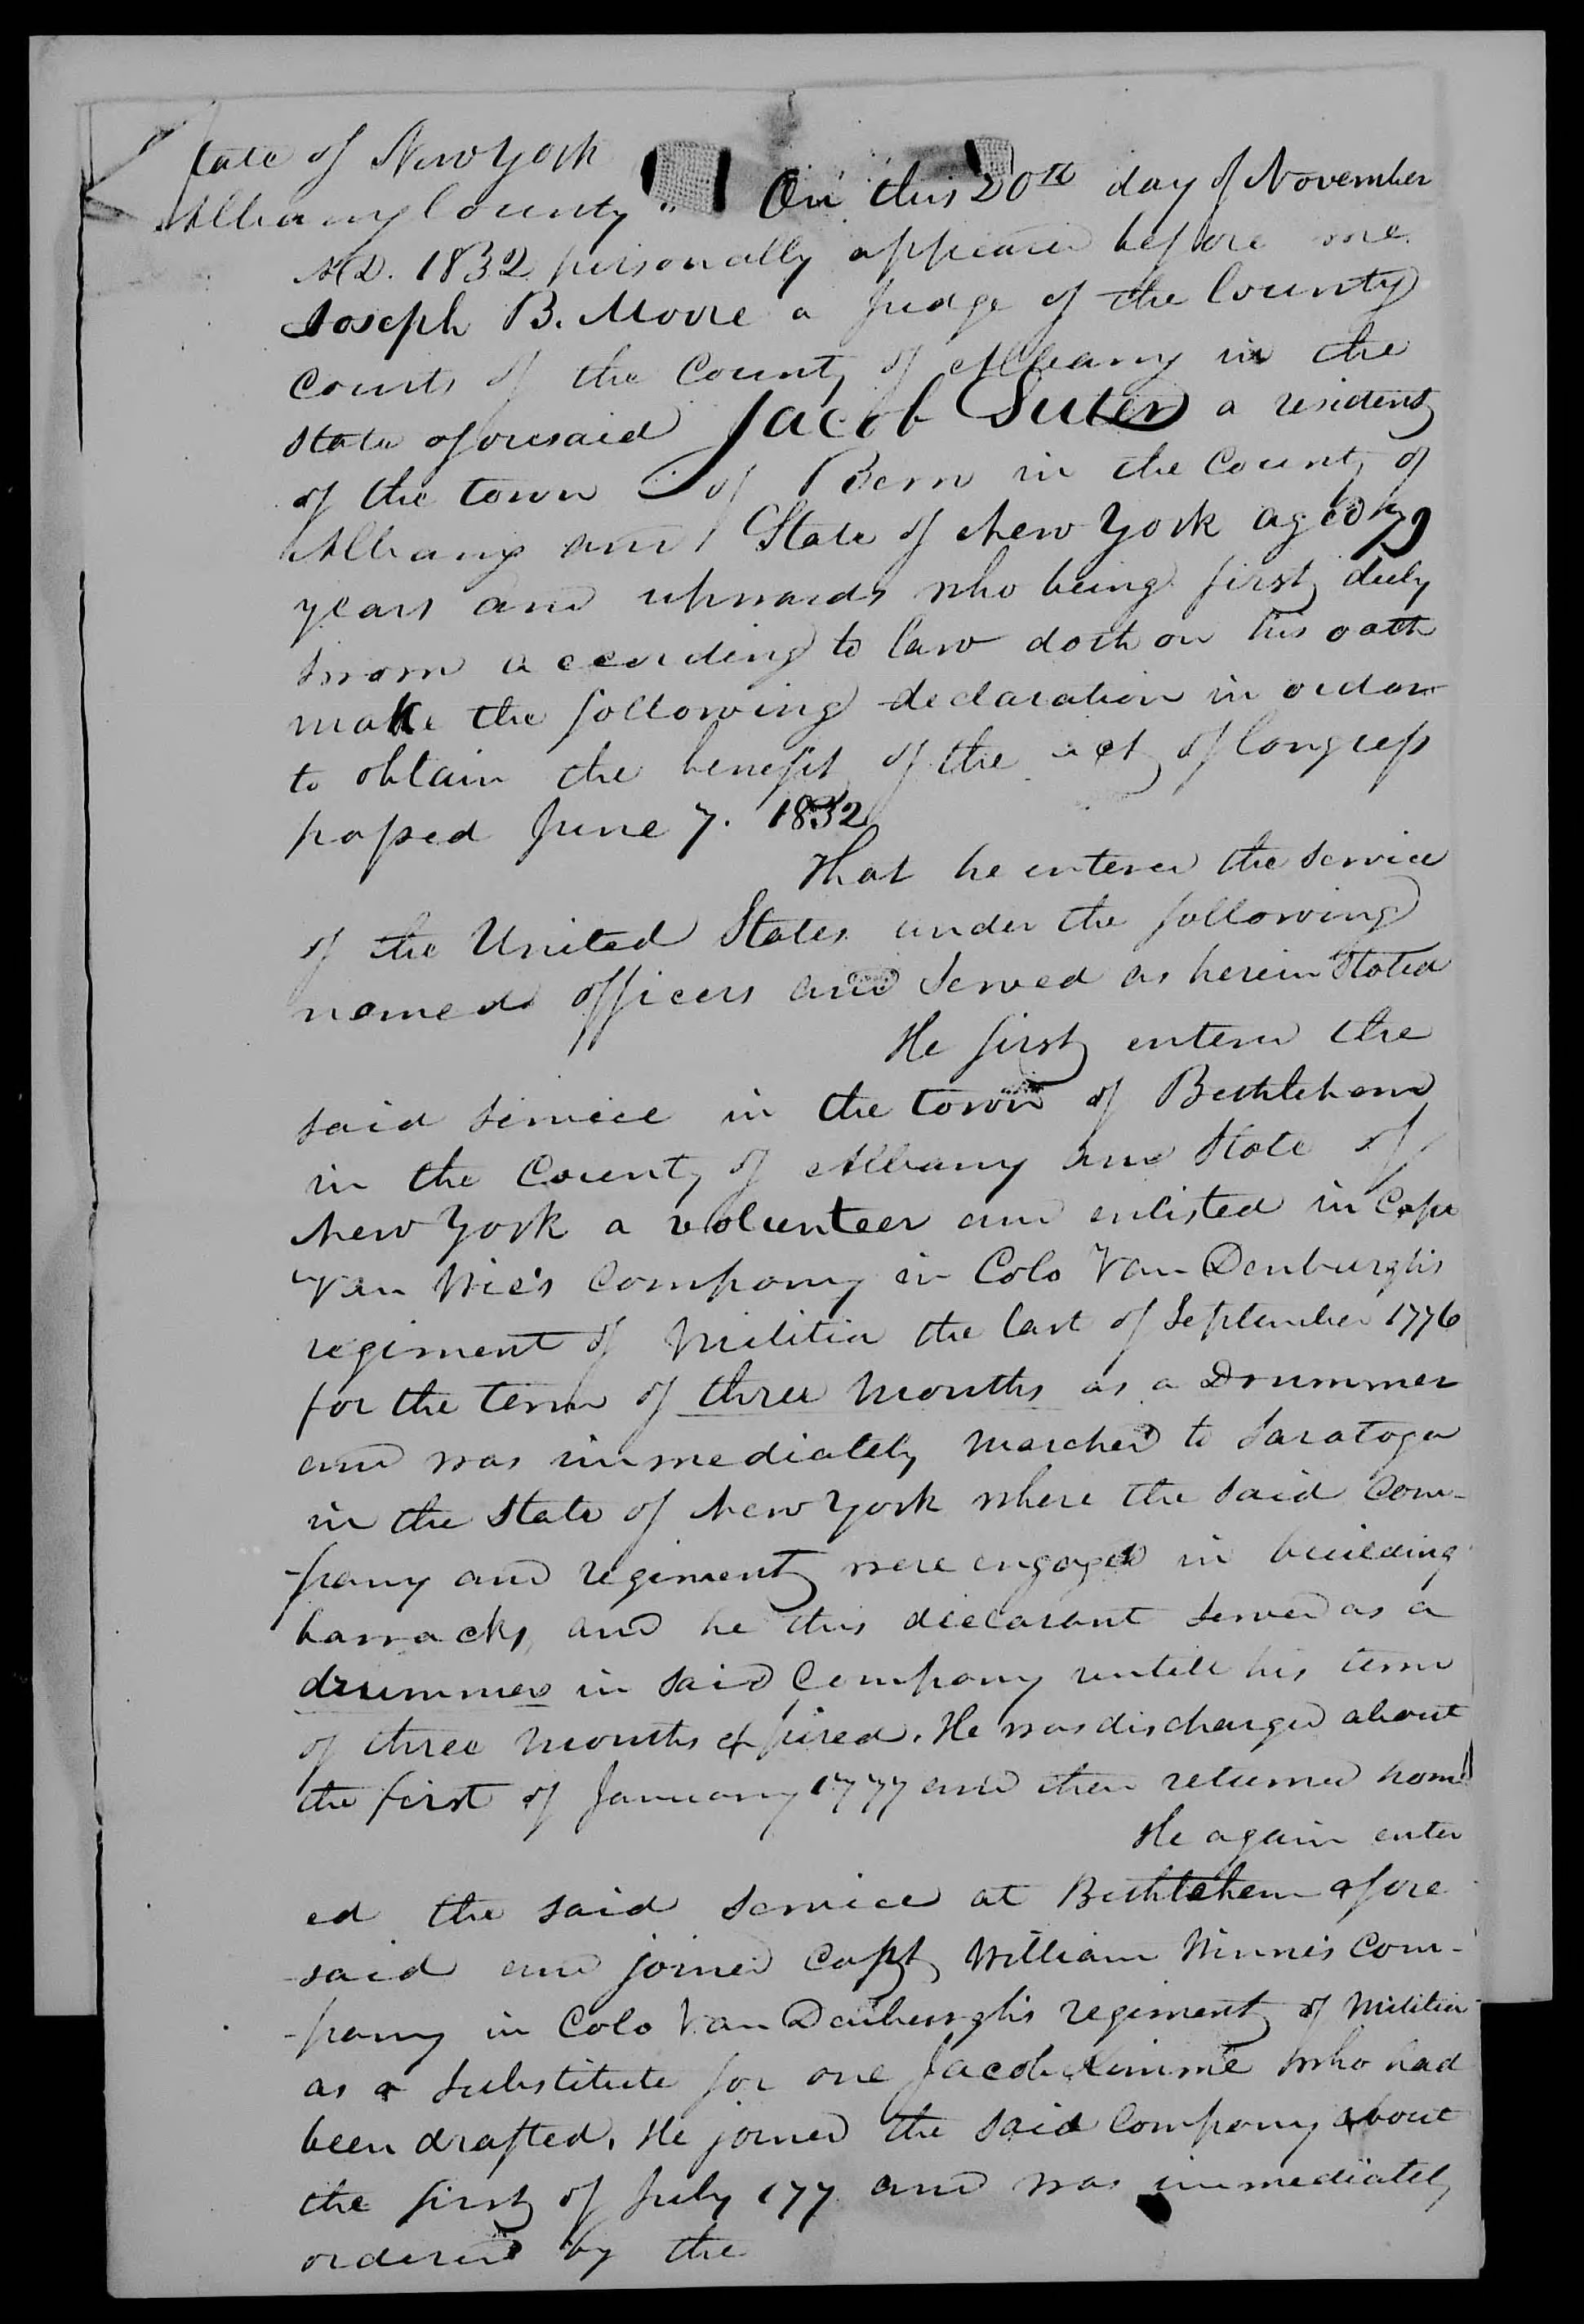 State of New York
Albany County " On this 20th day of November
A.D. 1832 personally appeared before me
Joseph B. Moore a Judge of the County
Courts of the County of Albany in the
State aforesaid Jacob Suter a resident
of the town of Bern in the County of
Albany and State of New York aged 79
years and upwards who being first duly
sworn according to law doth on his oath
make the following declaration in order
to obtain the benefit of the act of Congress
passed June 7. 1832
That he entered the service
of the United States under the following
named officers and served as herein stated
He first entered the
said service in the town of Bethlehem
in the County of Albany and State of
New York a volunteer and enlisted in Capt
Van Wie's Company in Colo Van Denburghs
regiment of Militia the last of September 1776
for the term of three months as a Drummer
and was immediately marched to Saratoga
in the State of New York where the said Com-
-pany and regiment were engaged in building
barracks, and he this declarant served as a
drummer in said Company untill his term
of three months expired. He was discharged about
the first of January 1777 and then returned home
He again enter
ed the said service at Bethlehem afore
-said and joined Capt William Winne's Com-
-pany in Colo Van Denburghs regiment of Militia
as a substitute for one Jacob Kimme who had
been drafted. He joined the said Company about
the first of July 177 and was immediately
ordered by the